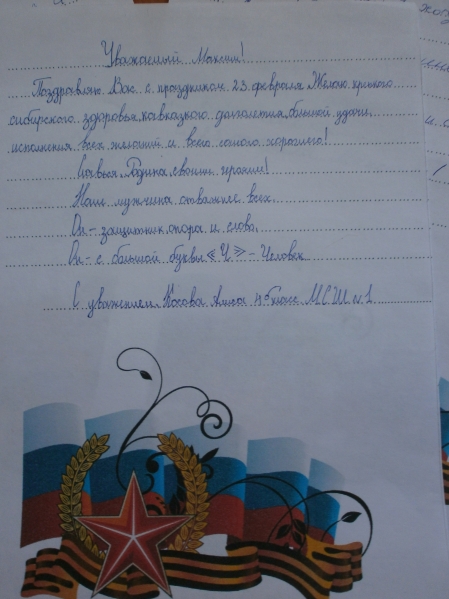 Уважаемый Максим!
Поздравляю Вас с праздником 23 февраля. Желаю крепкого
сибирского здоровья, кавказкого долголетия, большой удачи,
исполнения всех желаний и всего самого хорошего!
Родина, своими героями!
Наш мужчина отважнее всех.
Он - защитник, опора и слово,
Он - с большой буквы «Ч» - Человек
С уважением Косова 4 б класс МСШ №1